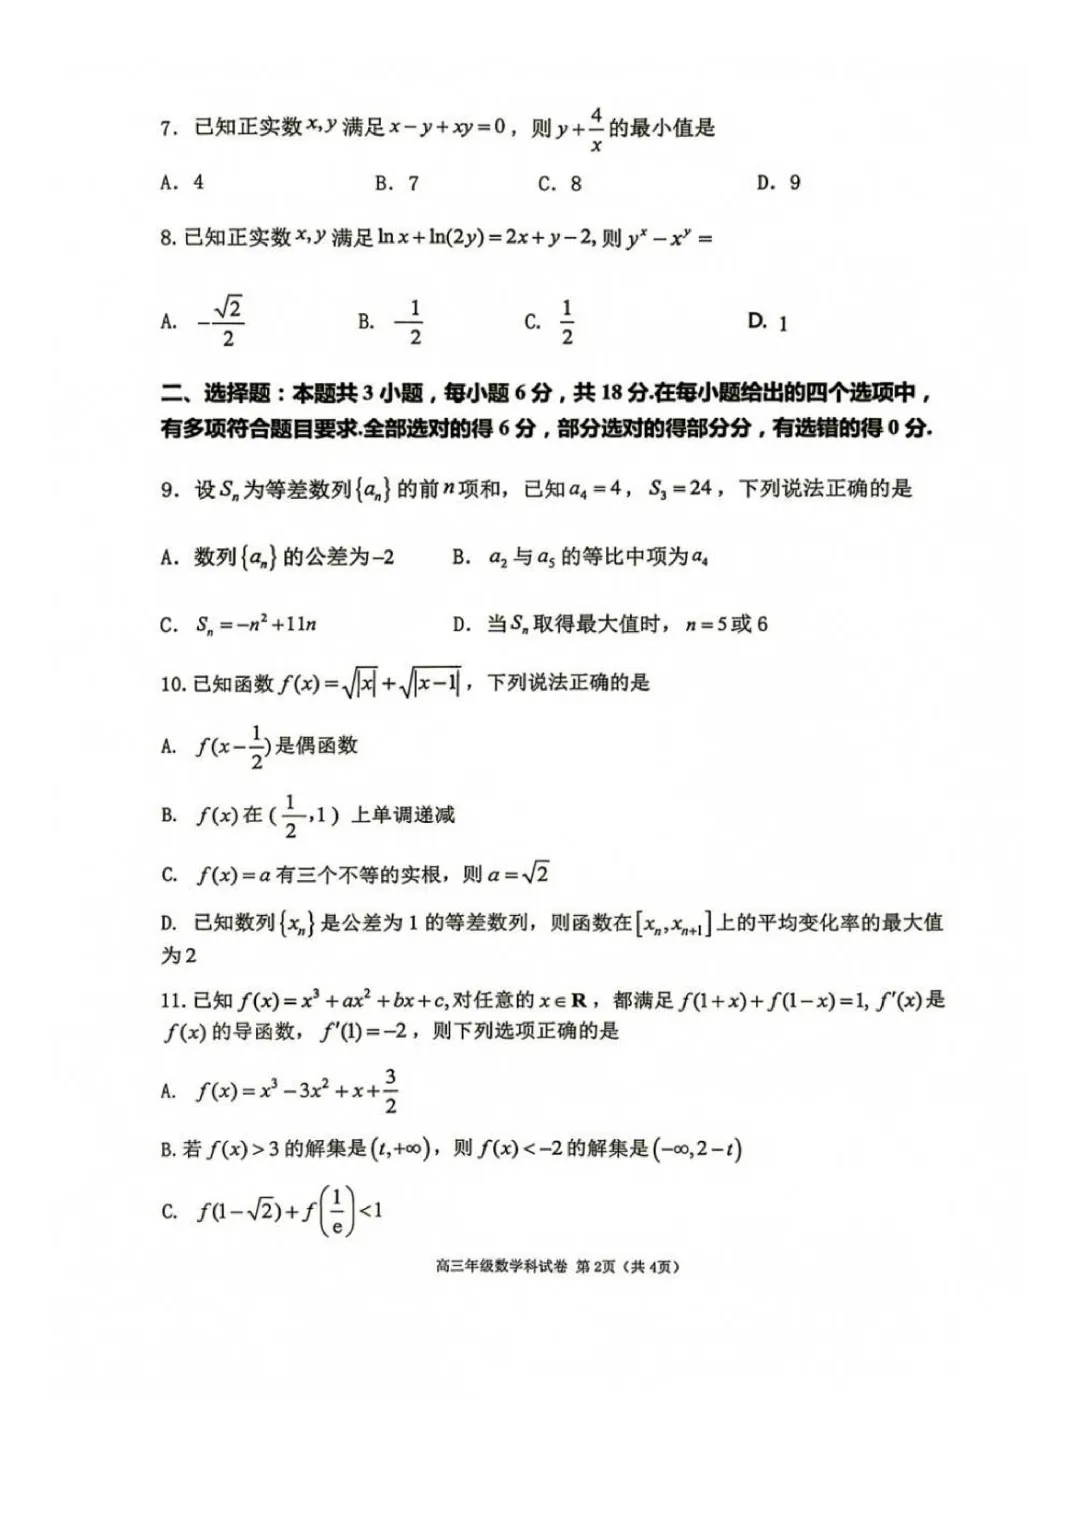 7. 已知正实数 x,y 满足 x-y+xy=0，则 y+4/x 的最小值是
A. 4 B. 7 C. 8 D. 9
8. 已知正实数 x,y 满足 ln x+ln(2y)=2x+y-2, 则 y^x-x^y =
A. -√2/2 B. -1/2 C. 1/2 D. 1
二、选择题：本题共 3 小题，每小题 6 分，共 18 分.在每小题给出的四个选项中，
有多项符合题目要求.全部选对的得 6 分，部分选对的得部分分，有选错的得 0 分.
9. 设 Sₙ 为等差数列{aₙ}的前 n 项和，已知 a₄=4，S₃=24，下列说法正确的是
A. 数列{aₙ}的公差为-2 B. a₂ 与 a₅ 的等比中项为 a₄
C. Sₙ=-n²+11n D. 当 Sₙ 取得最大值时，n=5 或 6
10. 已知函数 f(x)=√|x|+√|x-1|，下列说法正确的是
A. f(x-1/2)是偶函数
B. f(x)在(1/2,1）上单调递减
C. f(x)=a 有三个不等的实根，则 a=√2
D. 已知数列{xₙ}是公差为 1 的等差数列，则函数在[xₙ,xₙ₊₁]上的平均变化率的最大值
为 2
11. 已知 f(x)=x³+ax²+bx+c,对任意的 x∈R，都满足 f(1+x)+f(1-x)=1, f′(x)是
f(x)的导函数，f′(1)=-2，则下列选项正确的是
A. f(x)=x³-3x²+x+3/2
B. 若 f(x)>3 的解集是(t,+∞)，则 f(x)<-2 的解集是(-∞,2-t)
C. f(1-√2)+f(1/e)<1
高三年级数学科试卷 第 2页（共 4页）